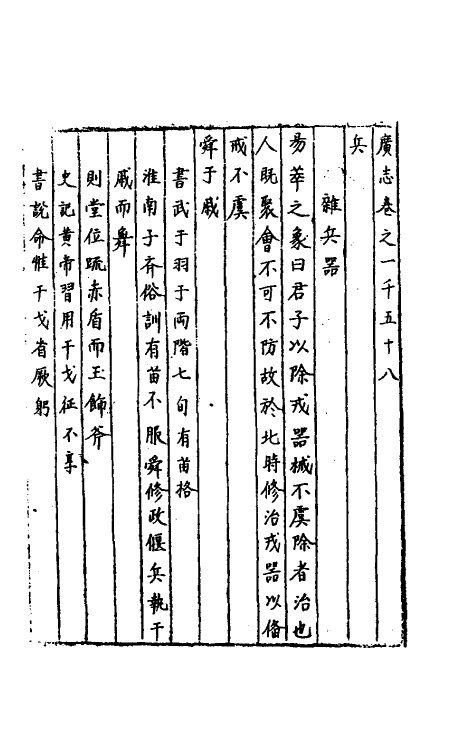 廣志卷之一千五十八
兵
雜兵器
易萃之象曰君子以除戎器械不虞除者治也
人既聚會不可不防故於北時修治戎器以俻
戒不虞
舜于戚
書武于羽于両階七旬有苗格
淮南子齐俗訓有苗不服舜修政偃兵執干
戚而舞
則堂位䟽赤盾而玉飾斧
史記黄帝習用干戈征不享
書說命惟干戈省厥躬